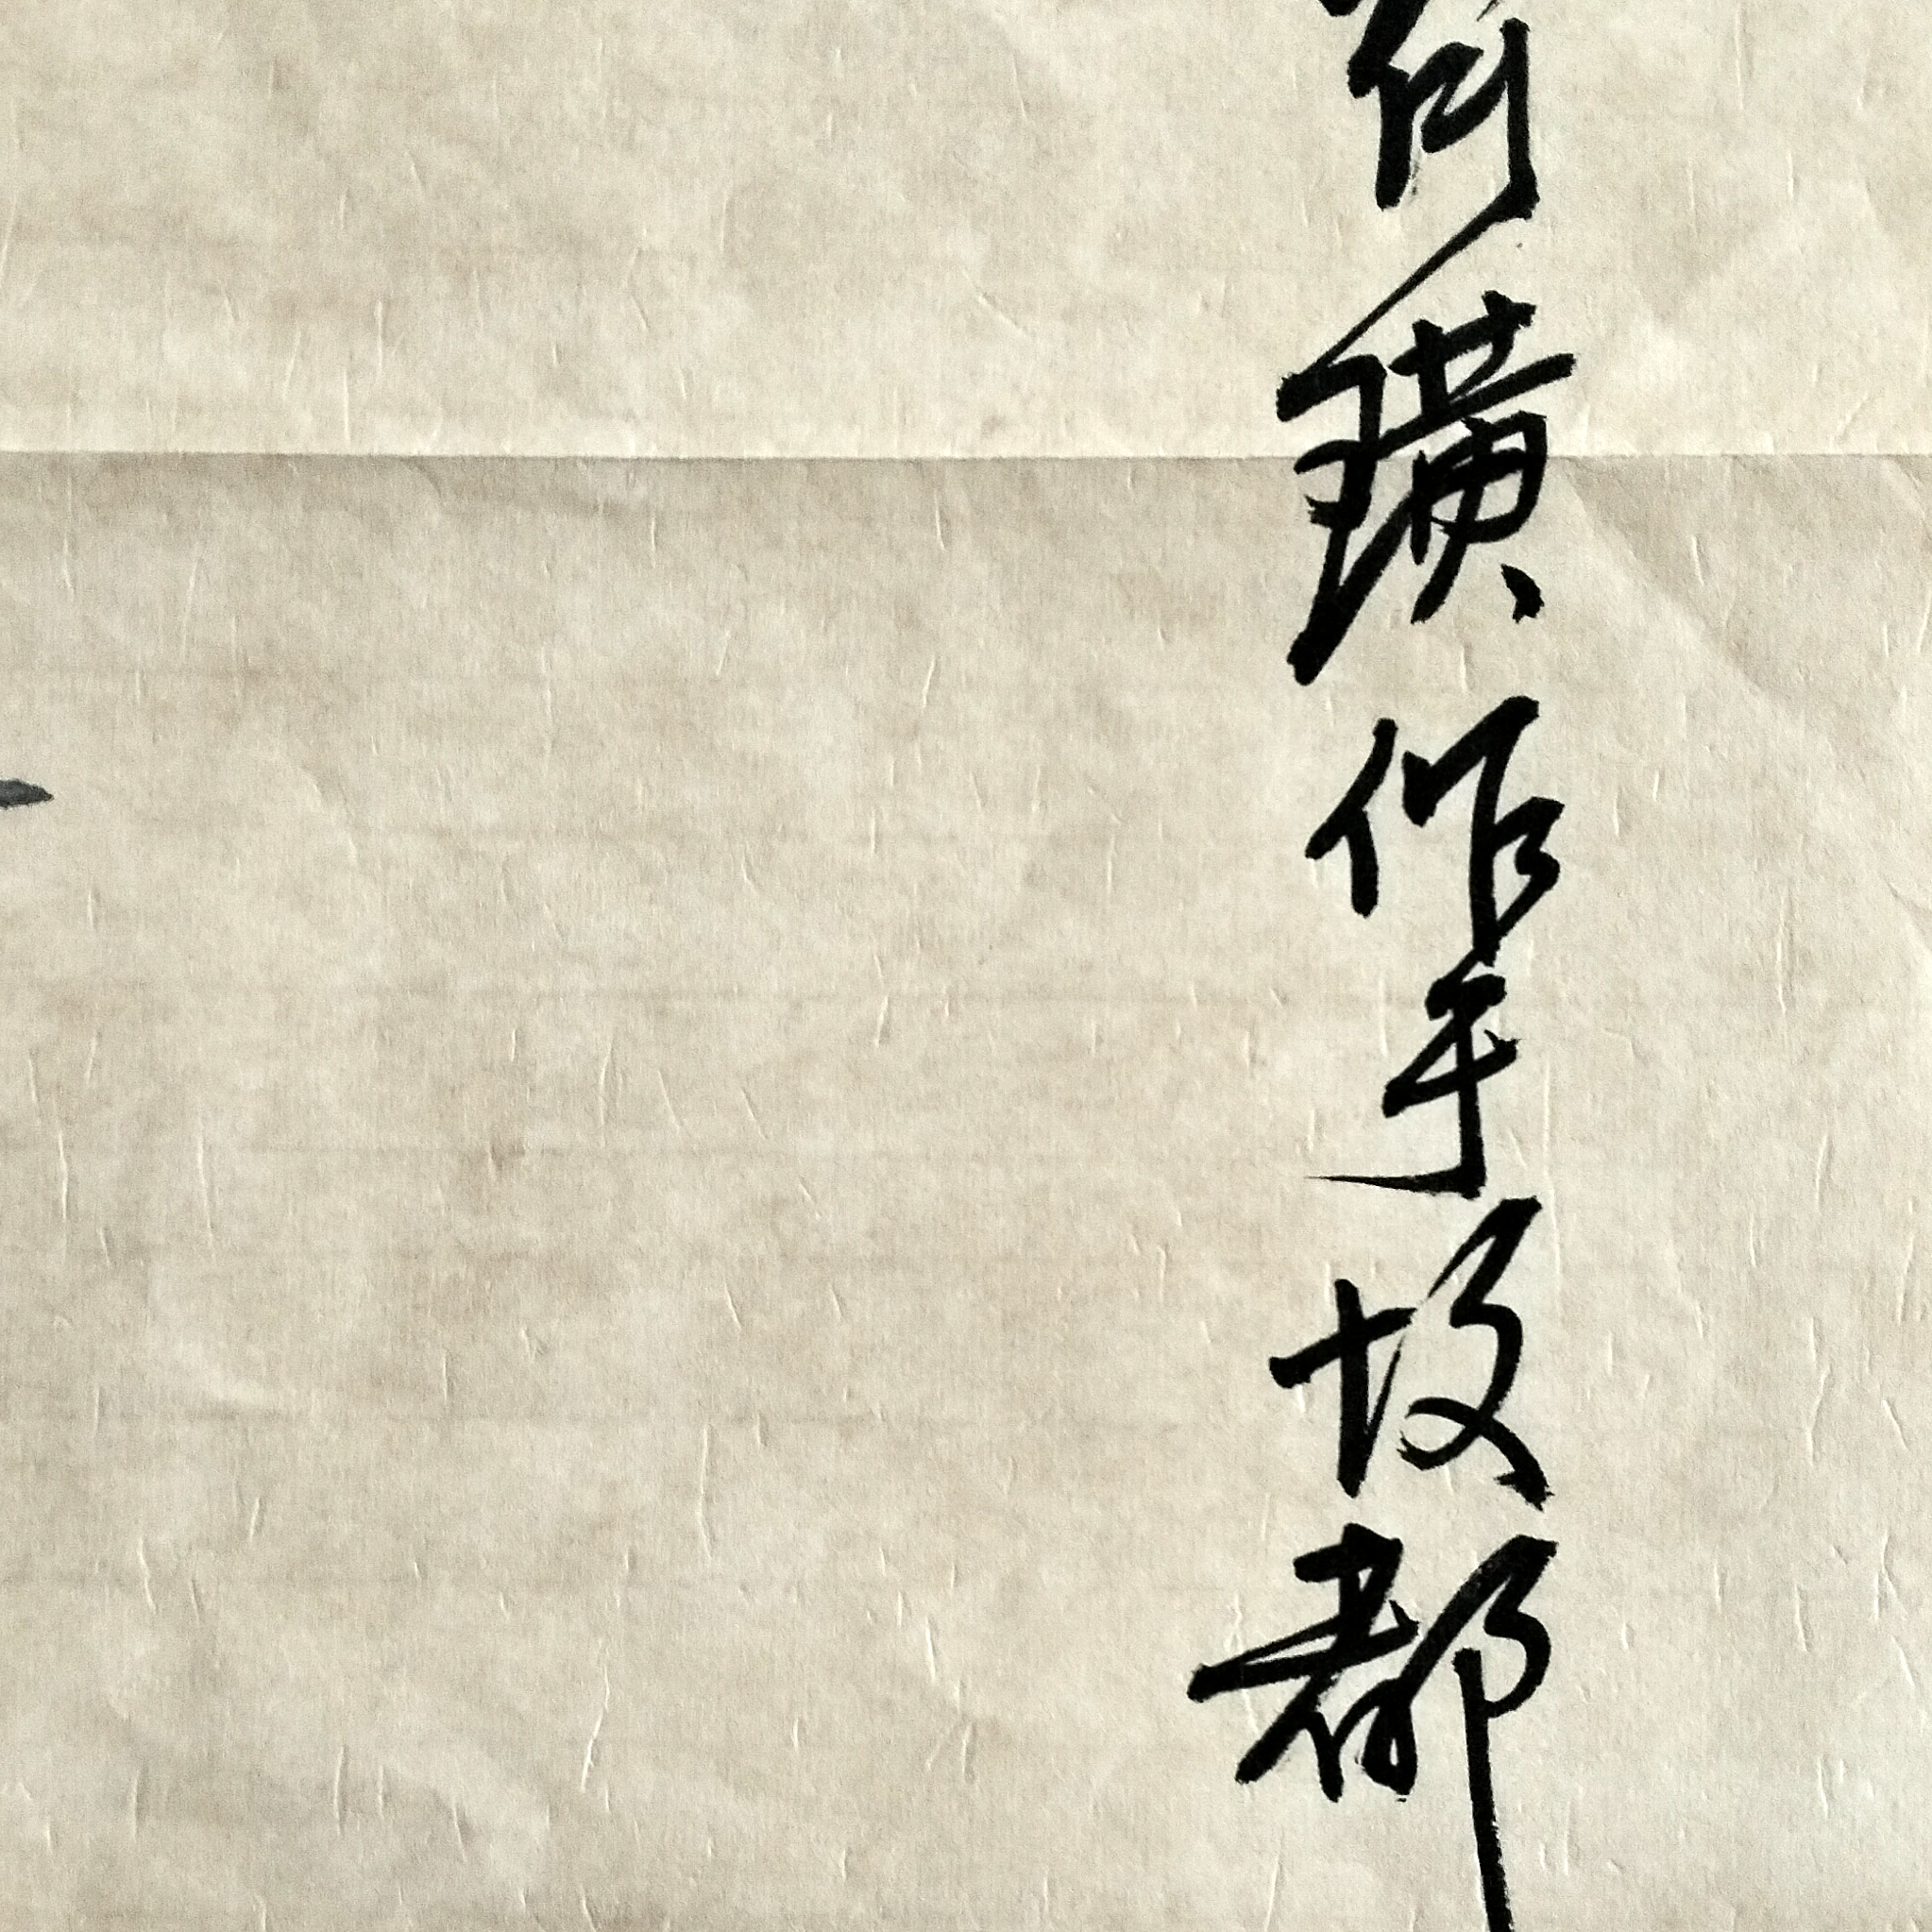 璜作于坟都